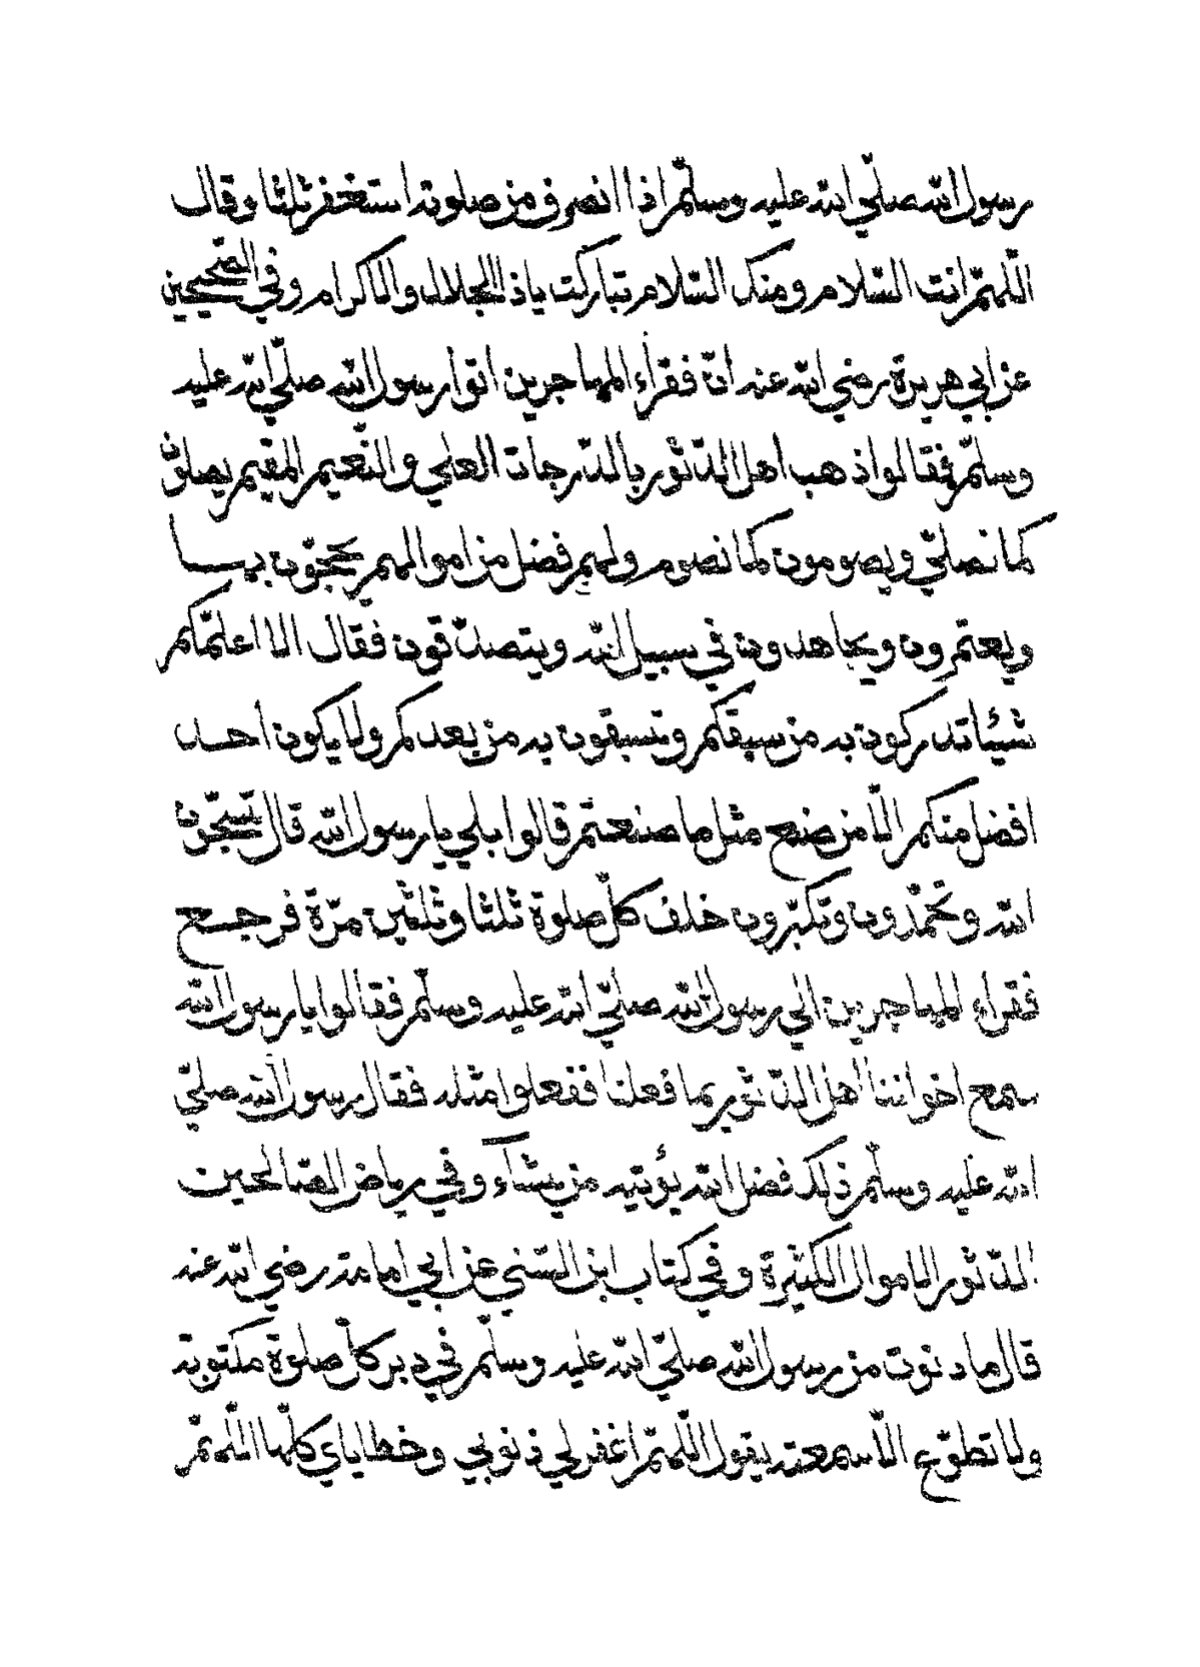 رسول الله صلّى الله عليه وسلّم اذا انصرف من صلوته استغفر ثلثا وقال
اللّهمّ انت السّلام ومنك السّلام تباركت ياذا الجلال والاكرام وفي الصّحيحين
عن ابي هريرة رضي الله عنه انّ فقرأء المهاجرين اتوا رسول الله صلّى الله عليه
وسلّم فقالوا ذهب اهل الدّثور بالدّرجات العلي والنّعيم المقيم يصلّون
كما نصلّي ويصومون كما نصوم ولهم فضل من اموالهم يحجّون بها
ويعتمرون ويجاهدون في سبيل الله ويتصدّقون فقال الا اعلّمكم
شيئا تدركون به من سبقكم وتسبقون به من بعدكم ولا يكون احد
افضل منكم الّا من صنع مثل ما صنعتم قالوا بلي يا رسول الله قال تسبّحون
الله وتحمّدون وتكبّرون خلف كلّ صلوة ثلثا وثلثين مرّة فرجع
فقرأء المهاجرين الي رسول الله صلّى الله عليه وسلّم فقالوا يا رسول الله
سمع اخواننا اهل الدّثور بما فعلنا ففعلوا مثله فقال رسول الله صلّى
الله عليه وسلّم ذلك فضل الله يؤتيه من يشآء وفي رياض الصّالحين
الدّثور الاموال الكثيرة وفي كتاب ابن السّني عن ابي امامة رضي الله عنه
قال ما دنوت من رسول الله صلّى الله عليه وسلّم في دبر كلّ صلوة مكتوبة
ولا تطوّع الّا سمعته يقول اللّهمّ اغفر لي ذنوبي وخطاياي كلّها اللّهمّ